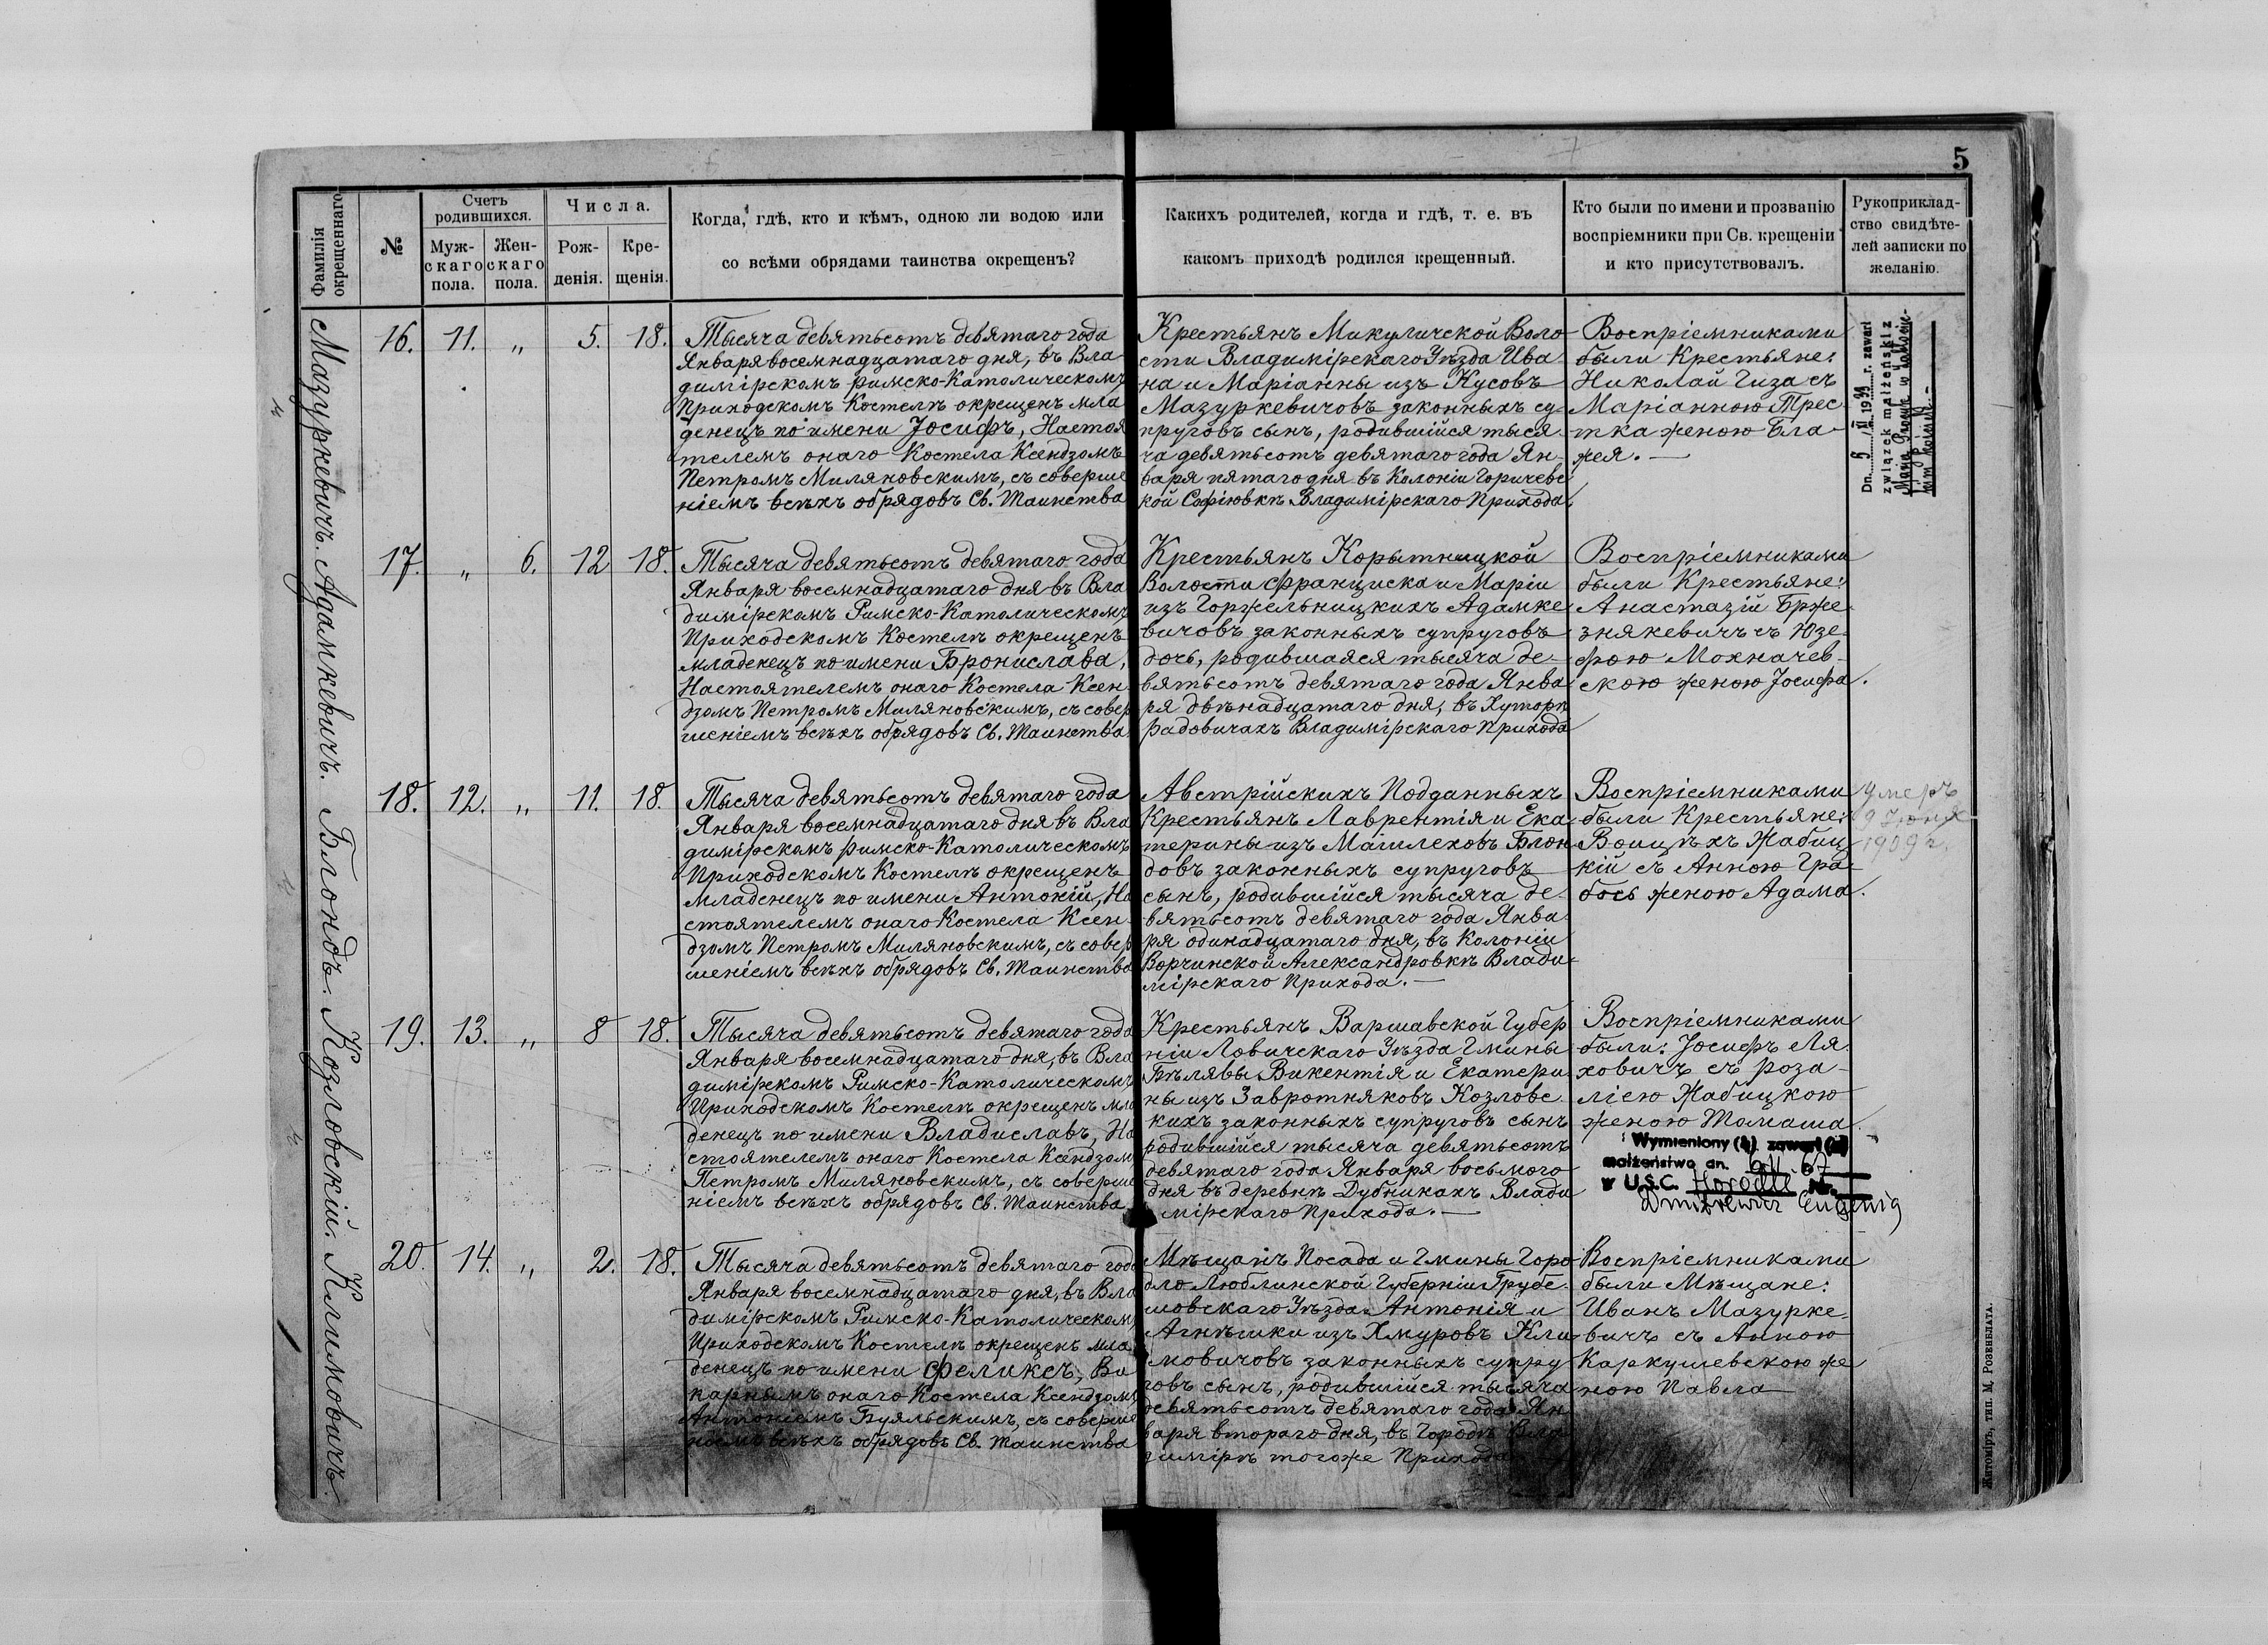 5
Фамилія
окрещеннаго
№
Счетъ
родившихся.
Муж-
скаго
пола.
Жен-
скаго
пола.
Числа.
Рож-
денія.
Кре-
щенія.
Когда, гдѣ, кто и кѣмъ, одною ли водою или
со всѣми обрядами таинства окрещенъ?
Какихъ родителей, когда и гдѣ, т. е. въ
какомъ приходѣ родился крещенный.
Кто были по имени и прозванію
воспріемники при Св. крещеніи
и кто присутствовалъ.
Рукоприклад-
ство свидѣте-
лей записки по
желанію.
Мазуркевичъ. Адамкевичъ. Блондъ. Козловскій. Климовичъ.
16. 11. „ 5. 18.
Тысяча девятьсотъ девятаго года
Января восемнадцатаго дня, въ Вла-
димірскомъ Римско-Католическомъ
Приходскомъ Костелѣ окрещенъ мла
денецъ по имени Іосифъ, Настоя
телемъ онаго Костела Ксендзомъ
Петромъ Миляновскимъ, съ соверше
ніемъ всѣхъ обрядовъ Св. Таинства
Крестьянъ Микуличской Воло
сти Владимірскаго Уѣзда Ива
на и Маріанны изъ Кусовъ
Мазуркевичовъ законныхъ су-
пруговъ сынъ, родившійся тыся
ча девятьсотъ девятаго года Ян-
варя пятаго дня въ Колоніи Горичевс
кой Софіювкѣ Владимірскаго Прихода
Воспріемниками
были Крестьяне:
Николай Гиза съ
Маріанною Трес-
тка женою Бла-
жея. —
Dn. r. zawarł
związek małżeński z
17. „ 6. 12 18.
Тысяча девятьсотъ девятаго года
Января восемнадцатаго дня въ Вла
димірскомъ Римско-Католическомъ
Приходскомъ Костелѣ окрещенъ
младенецъ по имени Бронислава,
Настоятелемъ онаго Костела Ксен-
дзомъ Петромъ Миляновскимъ, съ совер
шеніемъ всѣхъ обрядовъ Св. Таинства
Крестьянъ Корытницкой
Волости Франциска и Маріи
изъ Горжельницкихъ Адамке
вичовъ законныхъ супруговъ
дочь, родившаяся тысяча де-
вятьсотъ девятаго года Янва
ря двѣнадцатаго дня, въ Хуторѣ
Радовичахъ Владимірскаго Прихода
Воспріемниками
были Крестьяне:
Анастазій Брже-
знякевичъ съ Юзе-
фою Мохначев-
скою женою Іосифа.
18. 12. „ 11. 18.
Тысяча девятьсотъ девятаго года
Января восемнадцатаго дня въ Вла
димірскомъ Римско-Католическомъ
Приходскомъ Костелѣ окрещенъ
Младенецъ по имени Антоній, На
стоятелемъ онаго Костела Ксен-
дзомъ Петромъ Миляновскимъ, съ совер
шеніемъ всѣхъ обрядовъ Св. Таинства
Австрійскихъ Подданныхъ
Крестьянъ Лаврентія и Ека-
терины изъ Машлеховъ Блон
довъ законныхъ супруговъ
сынъ, родившійся тысяча де-
вятьсотъ девятаго года Янва-
ря одинадцатаго дня, въ Колоніи
Ворчинской Александровкѣ Влади-
мірскаго Прихода. —
Воспріемниками
были Крестьяне:
Воицѣхъ Жабиц
кій съ Анною Гра-
бось женою Адама.
Умеръ
9 Іюня
1909 г.
19. 13. „ 8 18.
Тысяча девятьсотъ девятаго года
Января восемнадцатаго дня, въ Вла
димірскомъ Римско-Католическомъ
Приходскомъ Костелѣ окрещенъ мла
денецъ по имени Владиславъ, На
стоятелемъ онаго Костела Ксендзом
Петромъ Миляновскимъ, съ соверше
ніемъ всѣхъ обрядовъ Св. Таинства
Крестьянъ Варшавской Губер
ніи Ловичскаго Уѣзда Гмины
Бѣлявы Викентія и Екатери
ны изъ Завротняковъ Козловс
кихъ законныхъ супруговъ сынъ
родившійся тысяча девятьсотъ
девятаго года Января восьмого
дня въ деревнѣ Дубникахъ Влади
мірскаго Прихода. —
Воспріемниками
были: Іосифъ Ля-
ховичъ съ Роза-
ліею Жабицкою
женою Томаша.
Wymieniony (a) zawarł (a)
małżeństwo dn.
w U.S.C. Horodle Nr.
20. 14. „ 2. 18.
Тысяча девятьсотъ девятаго года
Января восемнадцатаго дня, въ Вла
димірскомъ Римско-Католическомъ
Приходскомъ Костелѣ окрещенъ мла
денецъ по имени Феликсъ, Ви
карнымъ онаго Костела Ксендзомъ
Антоніемъ Буяльскимъ, съ соверше
ніемъ всѣхъ обрядовъ Св. Таинства
Мѣщанъ Посада и Гмины Горо
дло Люблинской Губерніи Грубе-
шовскаго Уѣзда Антонія и
Агнѣшки изъ Хмуровъ Кли
мовичовъ законныхъ супру
говъ сынъ, родившійся тысяча
девятьсотъ девятаго года Ян
варя втораго дня, въ Городѣ Вла
димірѣ тогоже Прихода
Воспріемниками
были Мѣщане:
Иванъ Мазурке-
вичъ съ Анною
Каркушевскою же
ною Павла
Житоміръ, тип. М. Розенблата.